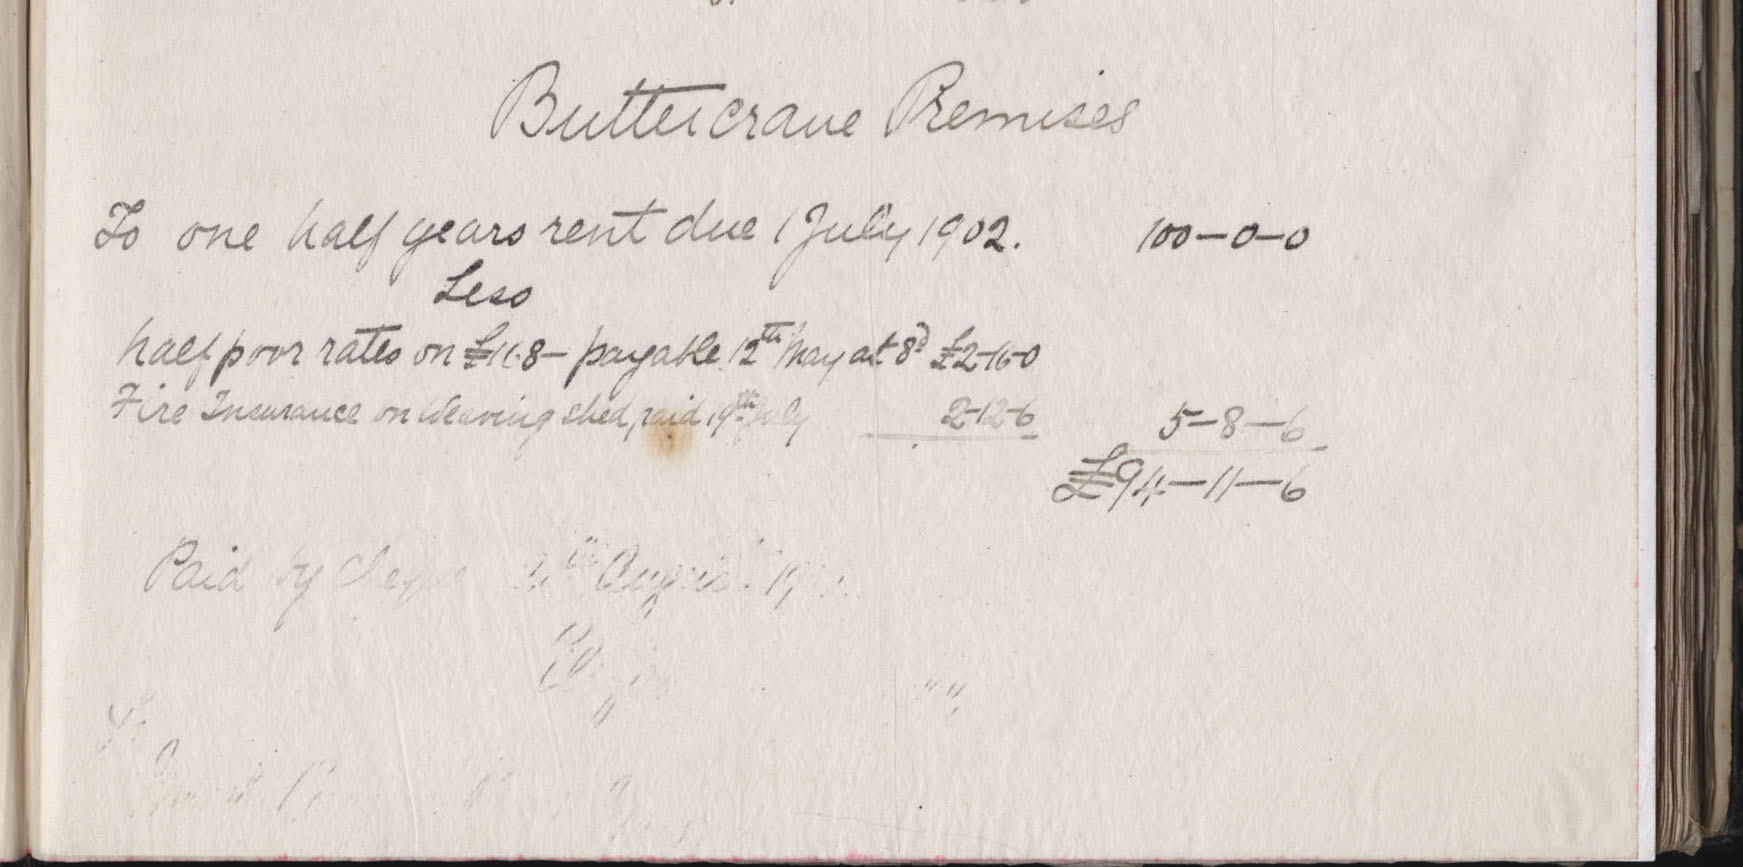 Buttercrane Premises
To one half years rent due 1 July 1902. 100-0-0
Less
half poor rates on £168- payable 12th May at 8d £2-16-0
Fire Insurance on Weaving shed, paid 19th July 2-12-6 5-8-6
£94-11-6
Paid by Cheque August